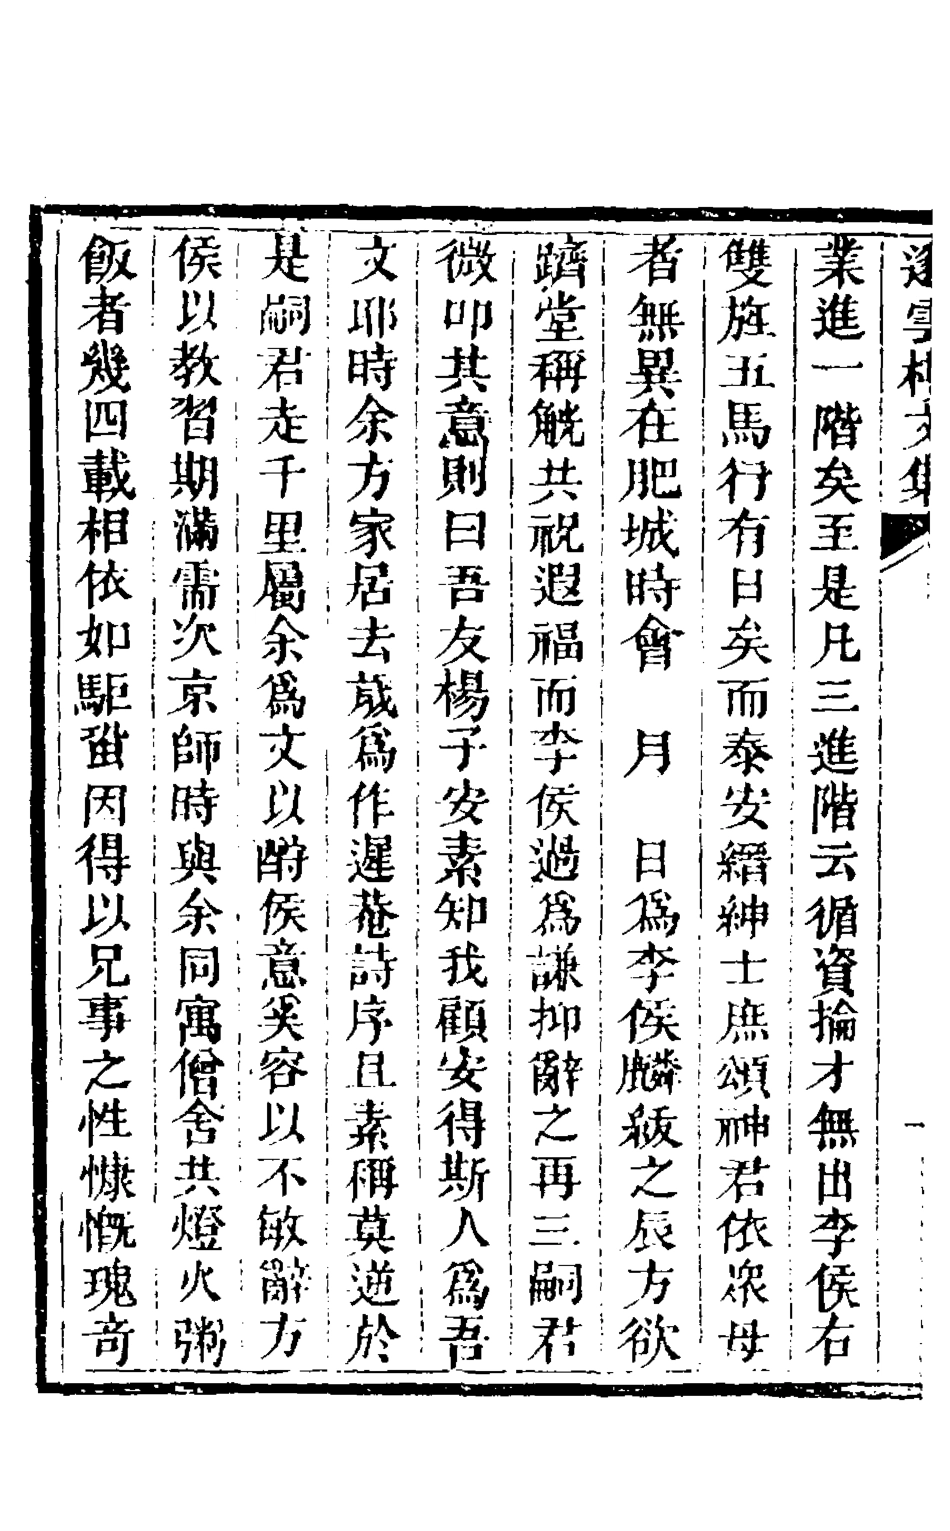 業進一階矣至是凡三進階云循資掄才無出李侯右
雙旌五馬行有日矣而泰安縉紳士庶頌神君依衆母
者無異在肥城時會　月　日為李侯麟紱之辰方欲
躋堂稱觥共祝遐福而李侯過為謙抑辭之再三嗣君
微叩其意則曰吾友楊子安素知我顧安得斯人為吾
文耶時余方家居去歲為作遲菴詩序且素稱莫逆於
是嗣君走千里屬余為文以酹侯意奚容以不敏辭方
侯以教習期滿需次京師時與余同寓僧舍共燈火粥
飯者幾四載相依如駏蛩因得以兄事之性慷慨瑰奇
文集
一